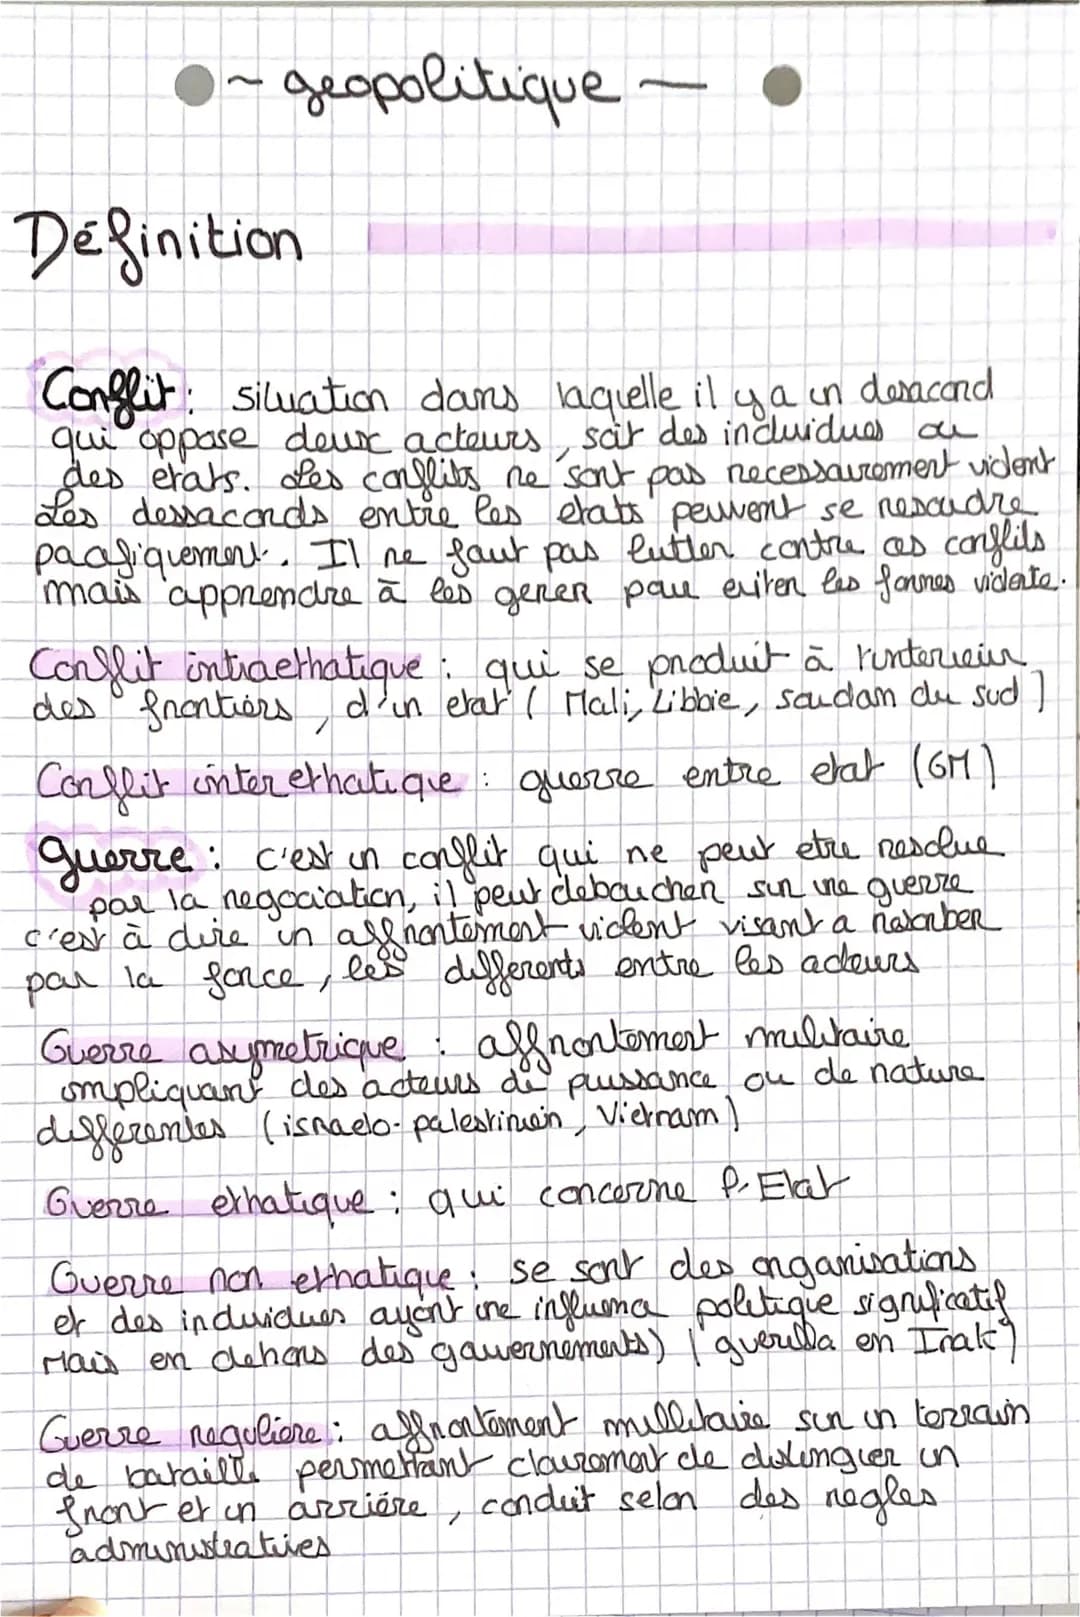 ~ geopolitique —
Définition
Conflit : situation dans laquelle il y a un desacord
qui oppose deux acteurs, soit des individues ou
des etats. Les conflits ne sont pas necessairement violent
Les dessacords entre les etats peuvent se resoudre
pacifiquement. Il ne faut pas lutter contre ces conflits
mais apprendre à les gerer pour eviter les formes violente.
Conflit intraethatique : qui se produit à l'interieur
des frontiers, d'un etat ( Mali, Libbie, soudam du sud )
Conflit interethatique : guerre entre etat (GM)
guerre : c'est un conflit qui ne peut etre resolue
par la negociation, il peut deboucher sur une guerre
c'est à dire un affrontement violent visant a
par la force, les differents entre les acteurs
Guerre asymetrique : affrontement militaire
impliquant des acteurs de puissance ou de nature
differentes (israelo-palestinien, Vietnam)
Guerre ethatique : qui concerne l'Etat
Guerre non ethatique : se sont des organisations
et des individues ayant une politique significatif
Mais en dehors des gouvernements) (guerilla en Irak)
Guerre reguliere : affrontement millitaire sur un terrain
de bataille permettant clairement de distinguer un
front et un arriére, conduit selon des regles
administratives